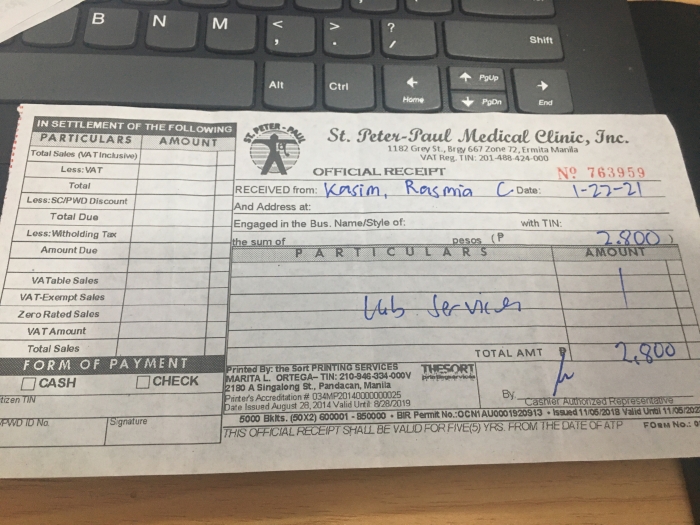 B N M < , > . ? / Shift
Alt Ctrl ← Home ↑ PgUp ↓ PgDn → End
IN SETTLEMENT OF THE FOLLOWING
PARTICULARS AMOUNT
Total Sales (VAT Inclusive)
Less: VAT
Total
Less: SC/PWD Discount
Total Due
Less: Witholding Tax
Amount Due
VATable Sales
VAT-Exempt Sales
Zero Rated Sales
VAT Amount
Total Sales
FORM OF PAYMENT
CASH CHECK
tizen TIN
PWD ID No. Signature
ST. PETER-PAUL
St. Peter-Paul Medical Clinic, Inc.
1182 Grey St., Brgy 667 Zone 72, Ermita Manila
VAT Reg. TIN: 201-488-424-000
OFFICIAL RECEIPT Nº 763959
RECEIVED from: Kasim, Rasmia C. Date: 1-27-21
And Address at:
Engaged in the Bus. Name/Style of: with TIN:
the sum of pesos (₱ 2,800)
PARTICULARS AMOUNT
Lab Services
TOTAL AMT ₱ 2,800
Printed By: the Sort PRINTING SERVICES THESORT
MARITA L. ORTEGA- TIN: 210-946-334-000V
2180 A Singalong St., Pandacan, Manila
Printer's Accreditation # 034MP20140000000025
Date Issued August 28, 2014 Valid Until 8/28/2019
By
Cashier Authorized Representative
5000 Bklts. (50X2) 600001 - 850000 • BIR Permit No.:OCN1AU0001920913 • Issued 11/06/2018 Valid Until 11/05/202
THIS OFFICIAL RECEIPT SHALL BE VALID FOR FIVE(5) YRS. FROM THE DATE OF ATP FORM No.: 0